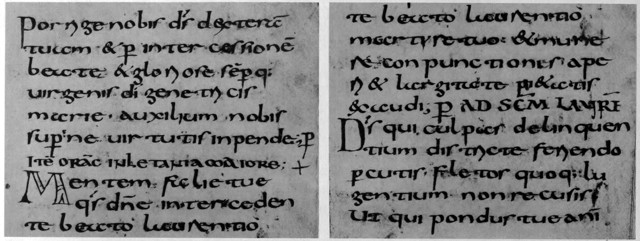 Porrige nobis ds̄ dexterā
tuam & p̄ intercessionē
beate & gloriose sēpq;
virginis dī genetricis
marie auxilium nobis
sup̄ne virtutis inpende; p̄
ITē ORAC̄ INLETANIA MAIORE;
Mentem familie tue
q̄s dn̄e interceden
te beato laurentio
te beato laurentio
martyre tuo & mune
re conpunctionis ape
ri & largitate pi&atis
exaudi; p̄ AD SCM̄ LAURE
Ds̄ qui culpas delinquen
tium districte feriendo
percutis. fletos quoq; lu
gentium non recusis
ut qui pondus tue ani